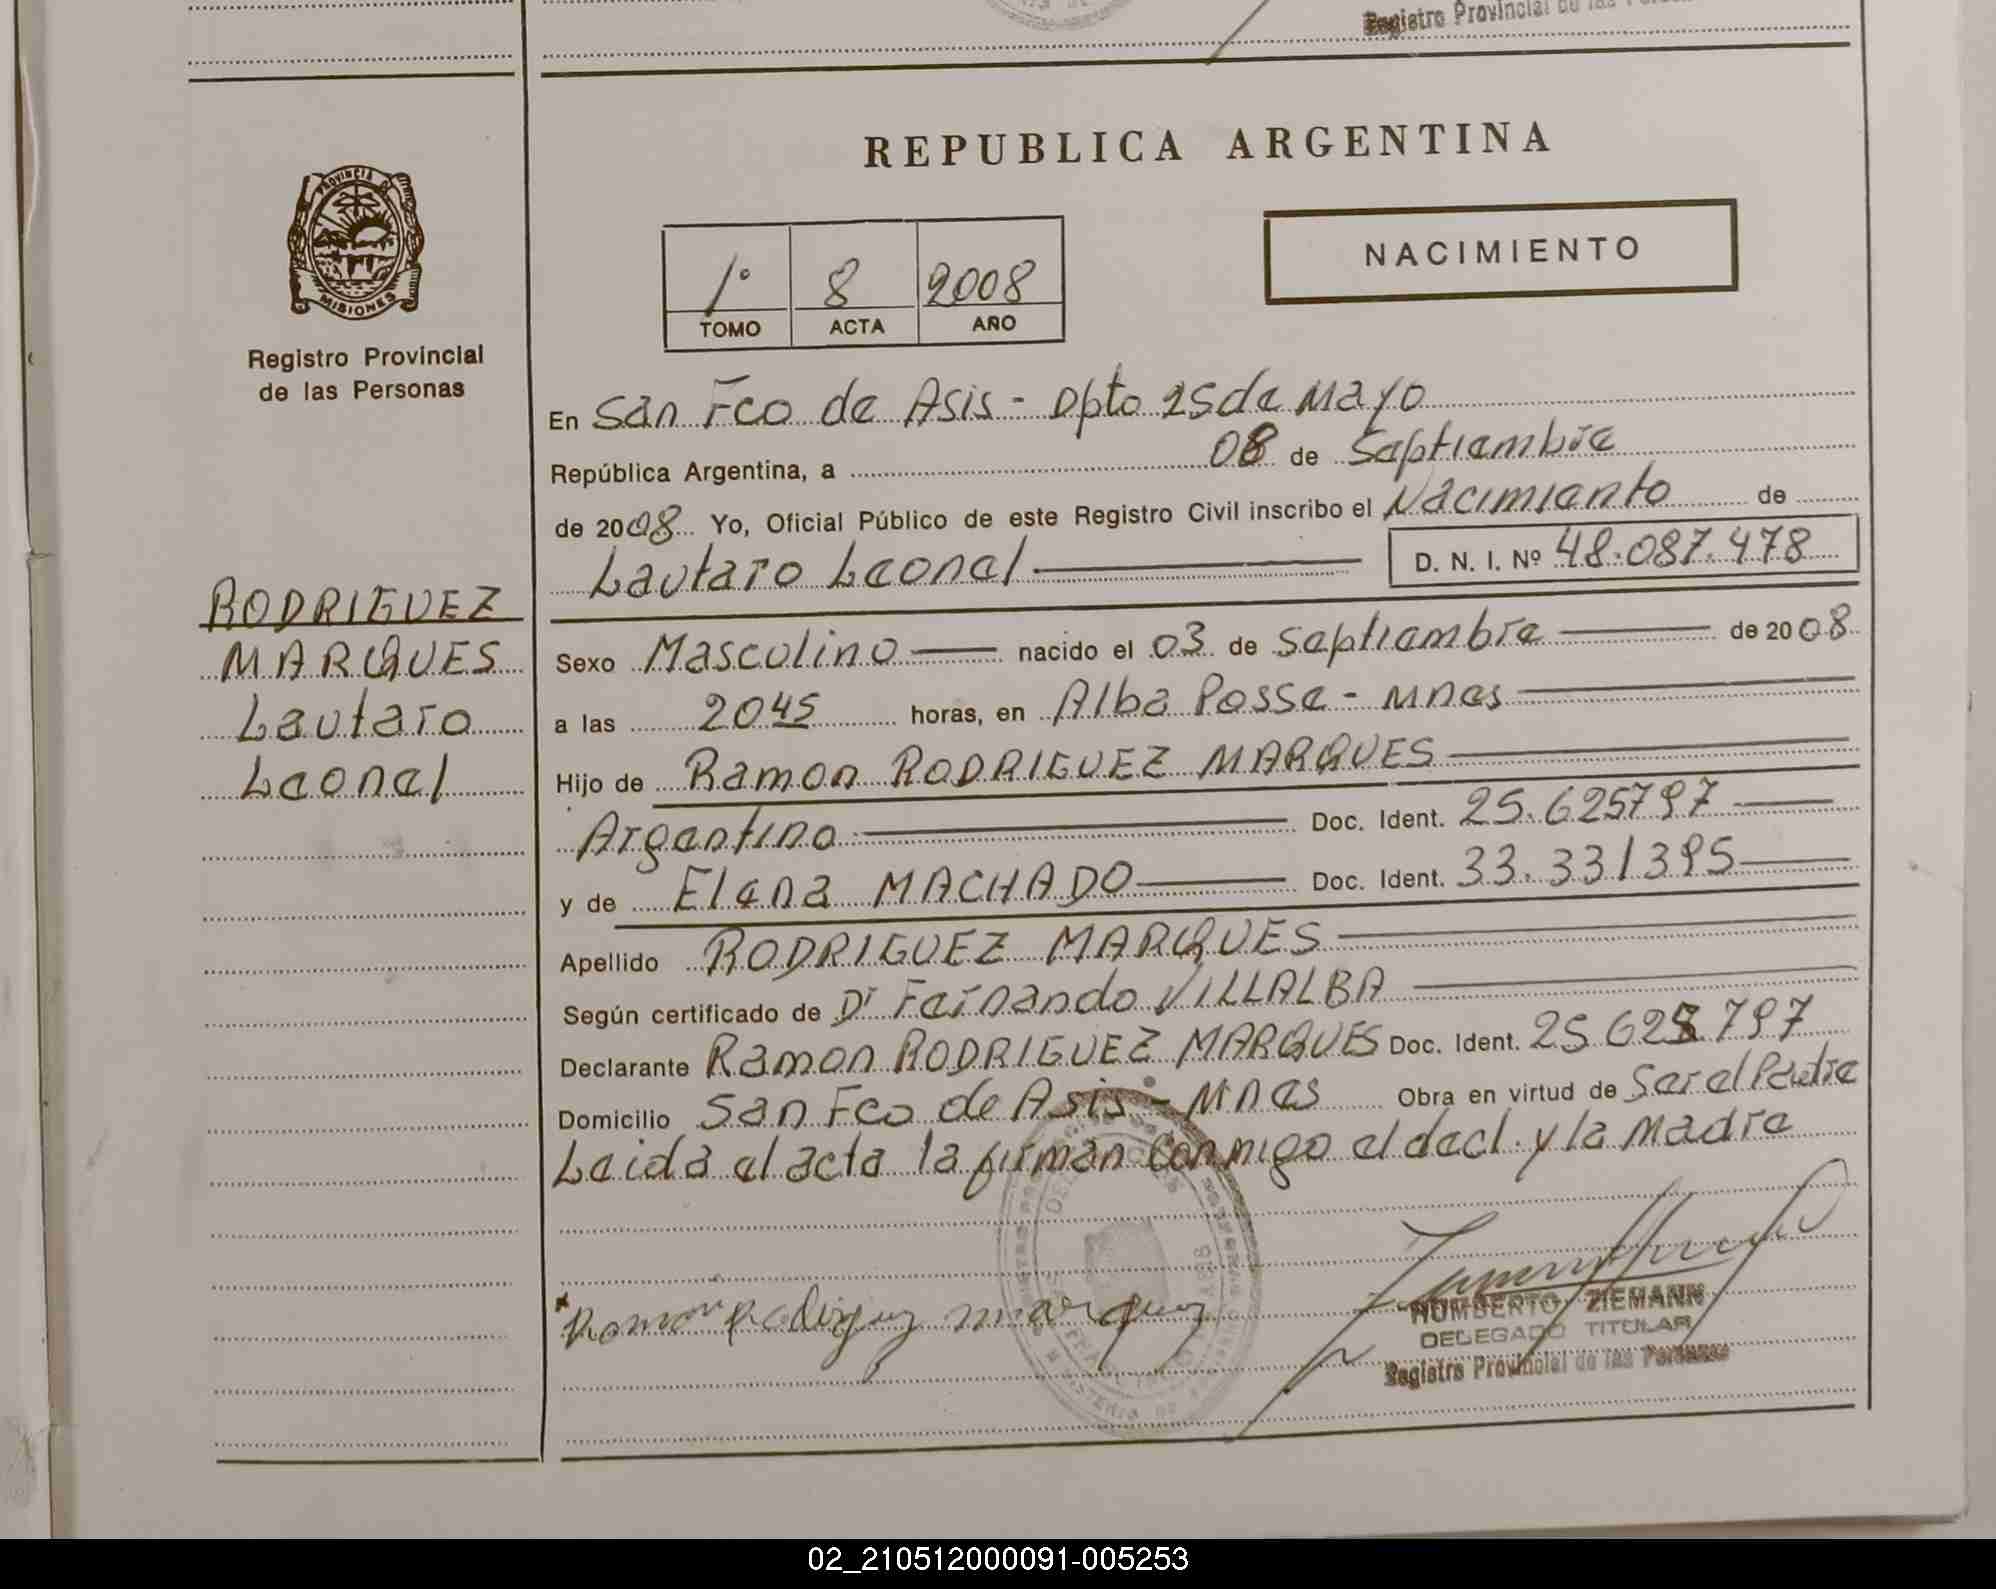 Registro Provincial de las
REPUBLICA ARGENTINA
PROVINCIA DE
MISIONES
Registro Provincial
de las Personas
NACIMIENTO
1º 8 2008
TOMO ACTA AÑO
En San Fco de Asis - Dpto 25 de Mayo
República Argentina, a 08 de Septiembre
de 2008 Yo, Oficial Público de este Registro Civil inscribo el Nacimiento de
Lautaro Leonel D. N. I. Nº 48.087.478
RODRIGUEZ
MARQUES
Lautaro
Leonel
Sexo Masculino nacido el 03 de Septiembre de 2008
a las 2045 horas, en Alba Posse - Mnes
Hijo de Ramon RODRIGUEZ MARQUES
Argentino Doc. Ident. 25.625797
y de Elena MACHADO Doc. Ident. 33.331395
Apellido RODRIGUEZ MARQUES
Según certificado de Dr Fernando VILLALBA
Declarante Ramon RODRIGUEZ MARQUES Doc. Ident. 25 625 797
Domicilio San Fco de Asis - Mnes Obra en virtud de Ser el Padre
Leida el acta la firman conmigo el decl. y la Madre
Ramon Rodriguez marquez
HUMBERTO ZIEMANN
DELEGADO TITULAR
Registro Provincial de las Personas
02_210512000091-005253